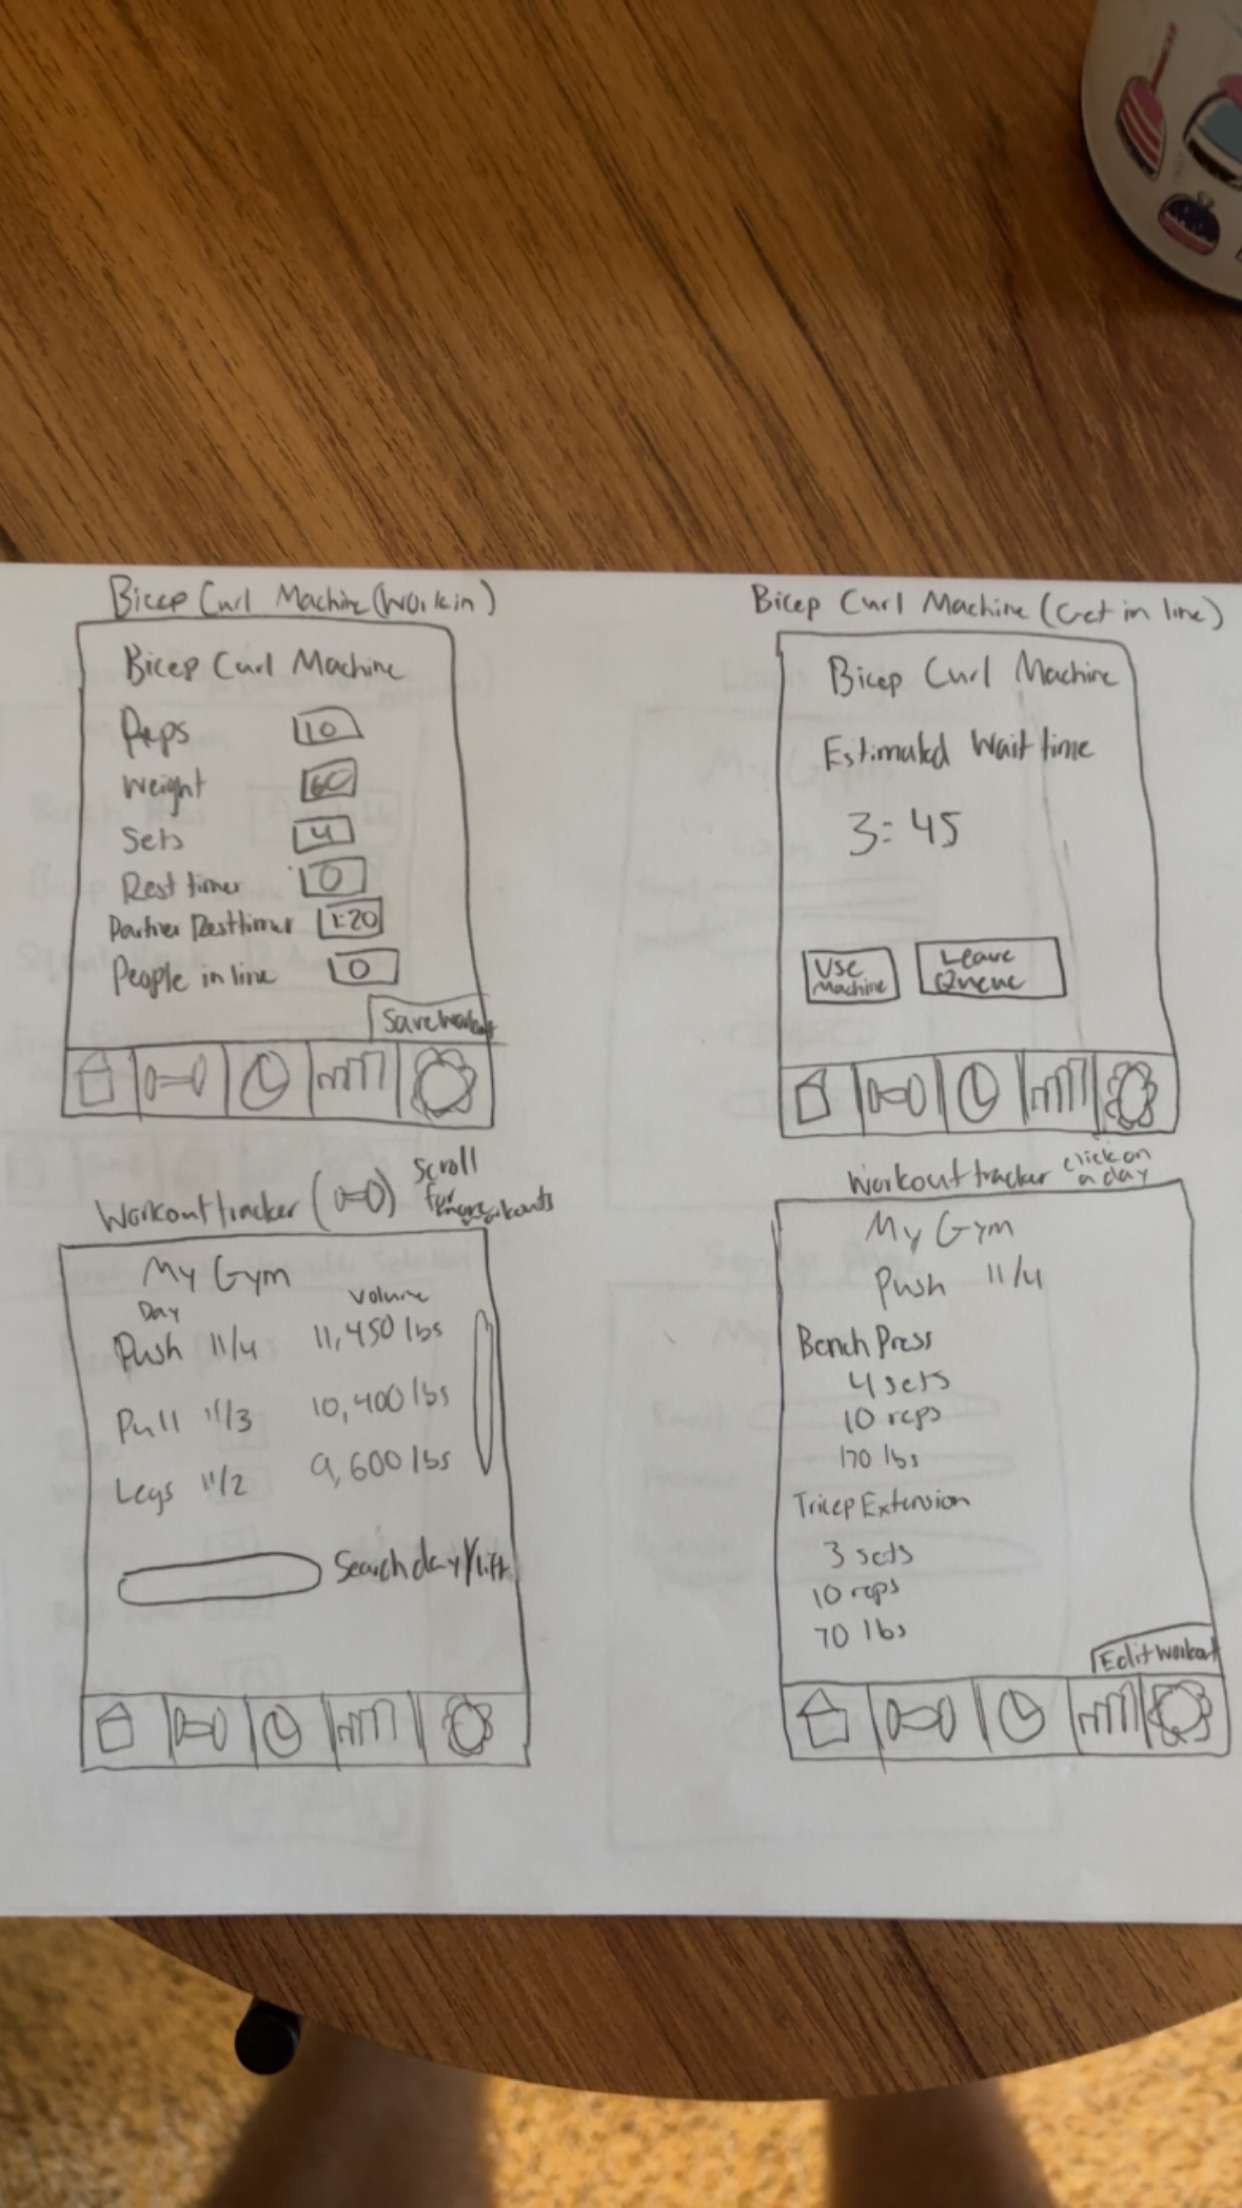 Bicep Curl Machine (Work in)
Bicep Curl Machine
Reps 10
Weight 60
Sets 4
Rest timer 0
Partner Rest timer 1:20
People in line 0
Save workout
Bicep Curl Machine (Get in line)
Bicep Curl Machine
Estimated Wait time
3:45
Use Machine
Leave Queue
Workout tracker
Scroll
for more workouts
My Gym
Day Volume
Push 11/4 11,450 lbs
Pull 11/3 10,400 lbs
Legs 11/2 9,600 lbs
Search day/lift
Workout tracker click on a day
My Gym
Push 11/4
Bench Press
4 sets
10 reps
170 lbs
Tricep Extension
3 sets
10 reps
70 lbs
Edit workout